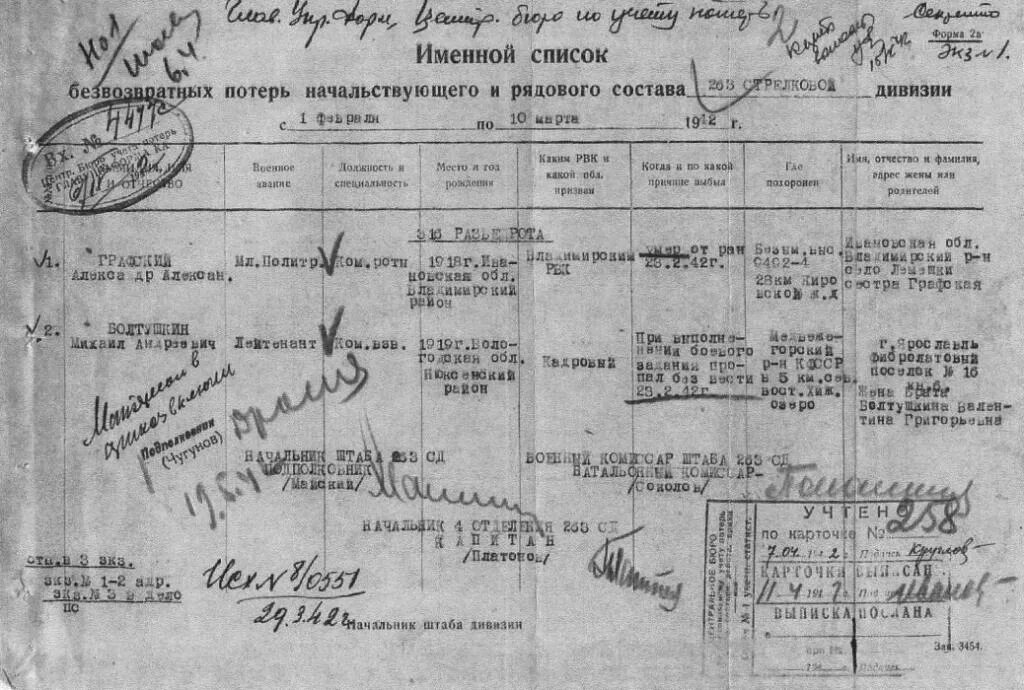 Глав. Упр. Форм, Центр. бюро по учету потерь
Секретно
Форма 2а
Экз №1.
Именной список
безвозвратных потерь начальствующего и рядового состава 263 СТРЕЛКОВОЙ дивизии
с 1 февраля по 10 марта 1942 г.
Вх. № 4477с
Центр. Бюро учета потерь
И ОТЧЕСТВО
Военное звание
Должность и специальность
Место и год рождения
Каким РВК и какой обл. призван
Когда и по какой причине выбыл
Где похоронен
Имя, отчество и фамилия, адрес жены или родителей
315 РАЗВЕДРОТА
1. ГРАФСКИЙ Мл.Политр. Ком.роты 1918г.Ива- Владимирский умер от ран Безым.выс. Ивановская обл.
Алекса др Алексан. новская обл. РВК 23.2.42г. 0402-4 Владимирский р-н
Владимирский 28км Киро село Лемешки
район вской ж.д сестра Графская
2. БОЛТУШКИН
Михаил Андреевич Лейтенант Ком.взв. 1919г.Воло- Кадровый При выполне- Медвеже- г.Ярославль
годская обл. нении боевого горский фибролатовый
Нюксенский задания про- р-н КФССР поселок № 16
район пал без вести в 5 км.сев. кв.6.
23.2.42г. вост.Хиж. Жена брата
озеро Болтушкина Вален-
тина Григорьевна
Подполковник
(Чугунов)
НАЧАЛЬНИК ШТАБА 263 СД
ПОДПОЛКОВНИК
/Майский/
ВОЕННЫЙ КОМИССАР ШТАБА 263 СД
БАТАЛЬОННЫЙ КОМИССАР-
/Соколов/
НАЧАЛЬНИК 4 ОТДЕЛЕНИЯ 263 СД
КАПИТАН
/Платонов/
отп.в 3 экз.
экз.№ 1-2 адр.
экз.№ 3 в дело
пс
Исх№ 8/0551
29.3.42г.
Начальник штаба дивизии
УЧТЕН
по карточке № 258
7.04 1942г. Подпись
КАРТОЧКИ ВЫПИСАН
11.4 194
ВЫПИСКА ПОСЛАНА
при №
194 г. Подпись
ЦЕНТРАЛЬНОЕ БЮРО
Зак. 3454.